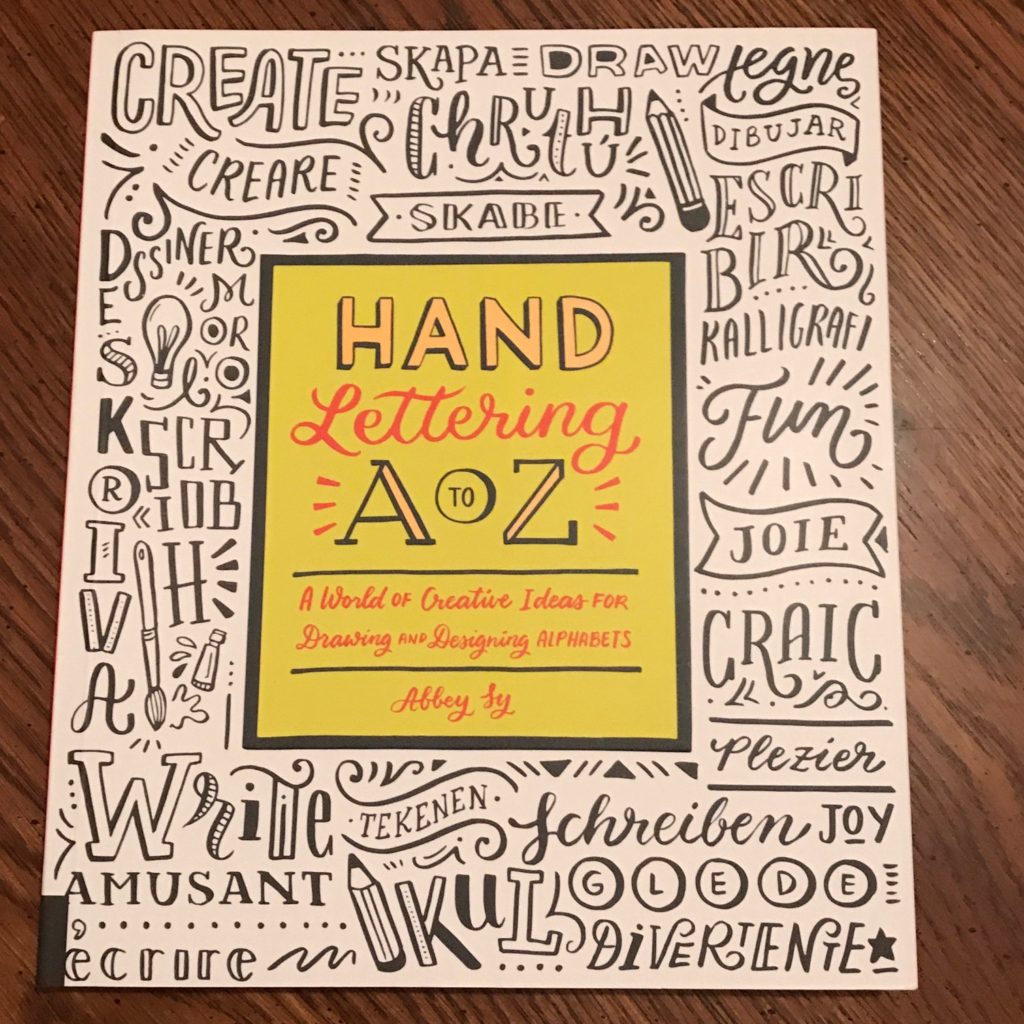 CREATE
SKAPA
DRAW
tegne
CHRUTHÚ
DIBUJAR
CREARE
SKABE
ESCRI
BIR
DESSINER
AMOR
KALLIGRAFI
HAND
Lettering
A TO Z
A World OF Creative Ideas FOR
Drawing AND Designing ALPHABETS
Abbey Sy
DESKRIVA
SCR
IOBH
Fun
JOIE
CRAIC
Plezier
Write
TEKENEN
Schreiben
JOY
AMUSANT
KUL
GLEDE
écrire
DIVERTENTE